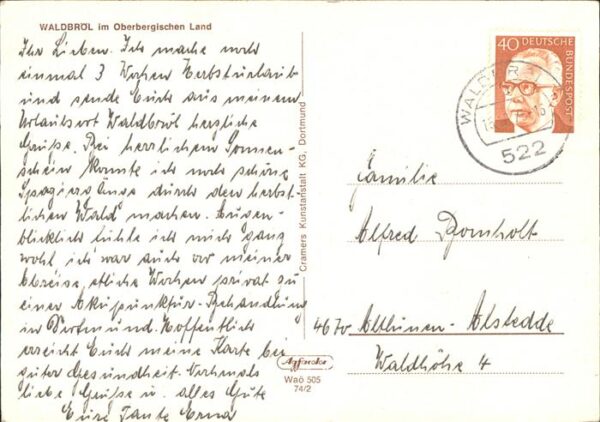 WALDBRÖL im Oberbergischen Land
Ihr Lieben. Ich mache noch
einmal 3 Wochen Herbsturlaub
und sende Euch aus meinem
Urlaubsort Waldbröl herzliche
Grüße. Bei herrlichem Sonnen-
schein konnte ich noch schöne
Spaziergänge durch den herbst-
lichen Wald machen. Augen-
blicklich fühle ich mich ganz
wohl ich war auch vor meiner
Abreise, etliche Wochen privat zu
einer Akupunktur-Behandlung
in Dortmund. Hoffentlich
erreicht Euch meine Karte bei
guter Gesundheit. Nochmals
liebe Grüße u. alles Gute
Eure Tante Erna
Cramers Kunstanstalt KG, Dortmund
Agfacolor
Waö 505
74/2
40 DEUTSCHE
BUNDESPOST
522
Familie
Alfred Bomholt
4670 Altlünen-Alstedde
Waldhöhe 4